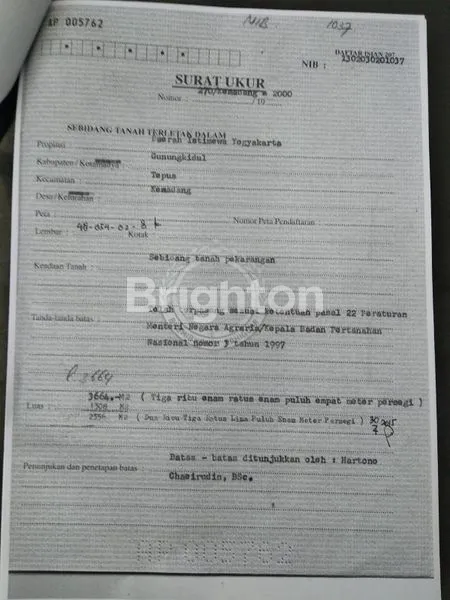 AP 005762
NIB. 1037
DAFTAR ISIAN 207
NIB : 1302030201037
SURAT UKUR
270/Kemadang = 2000
Nomor : /19
SEBIDANG TANAH TERLETAK DALAM
Propinsi : Daerah Istimewa Yogyakarta
Kabupaten / Kotamadya : Gunungkidul
Kecamatan : Tepus
Desa / Kelurahan : Kemadang
Peta : Nomor Peta Pendaftaran :
Lembar : 48-054-02-8 Kotak :
Keadaan Tanah : Sebidang tanah pekarangan
Brighton
Tanda-tanda batas : Telah terpasang sesuai ketentuan pasal 22 Peraturan
Menteri Negara Agraria/Kepala Badan Pertanahan
Nasional nomor 3 tahun 1997
P. 3664
3664.-M2 ( Tiga ribu enam ratus enam puluh empat meter persegi )
Luas : 1308 M2
2356 M2 ( Dua Ribu Tiga Ratus Lima Puluh Enam Meter Persegi )
Penunjukan dan penetapan batas : Batas - batas ditunjukkan oleh : Hartono
Chaeirudin, BSc.
AP 005762